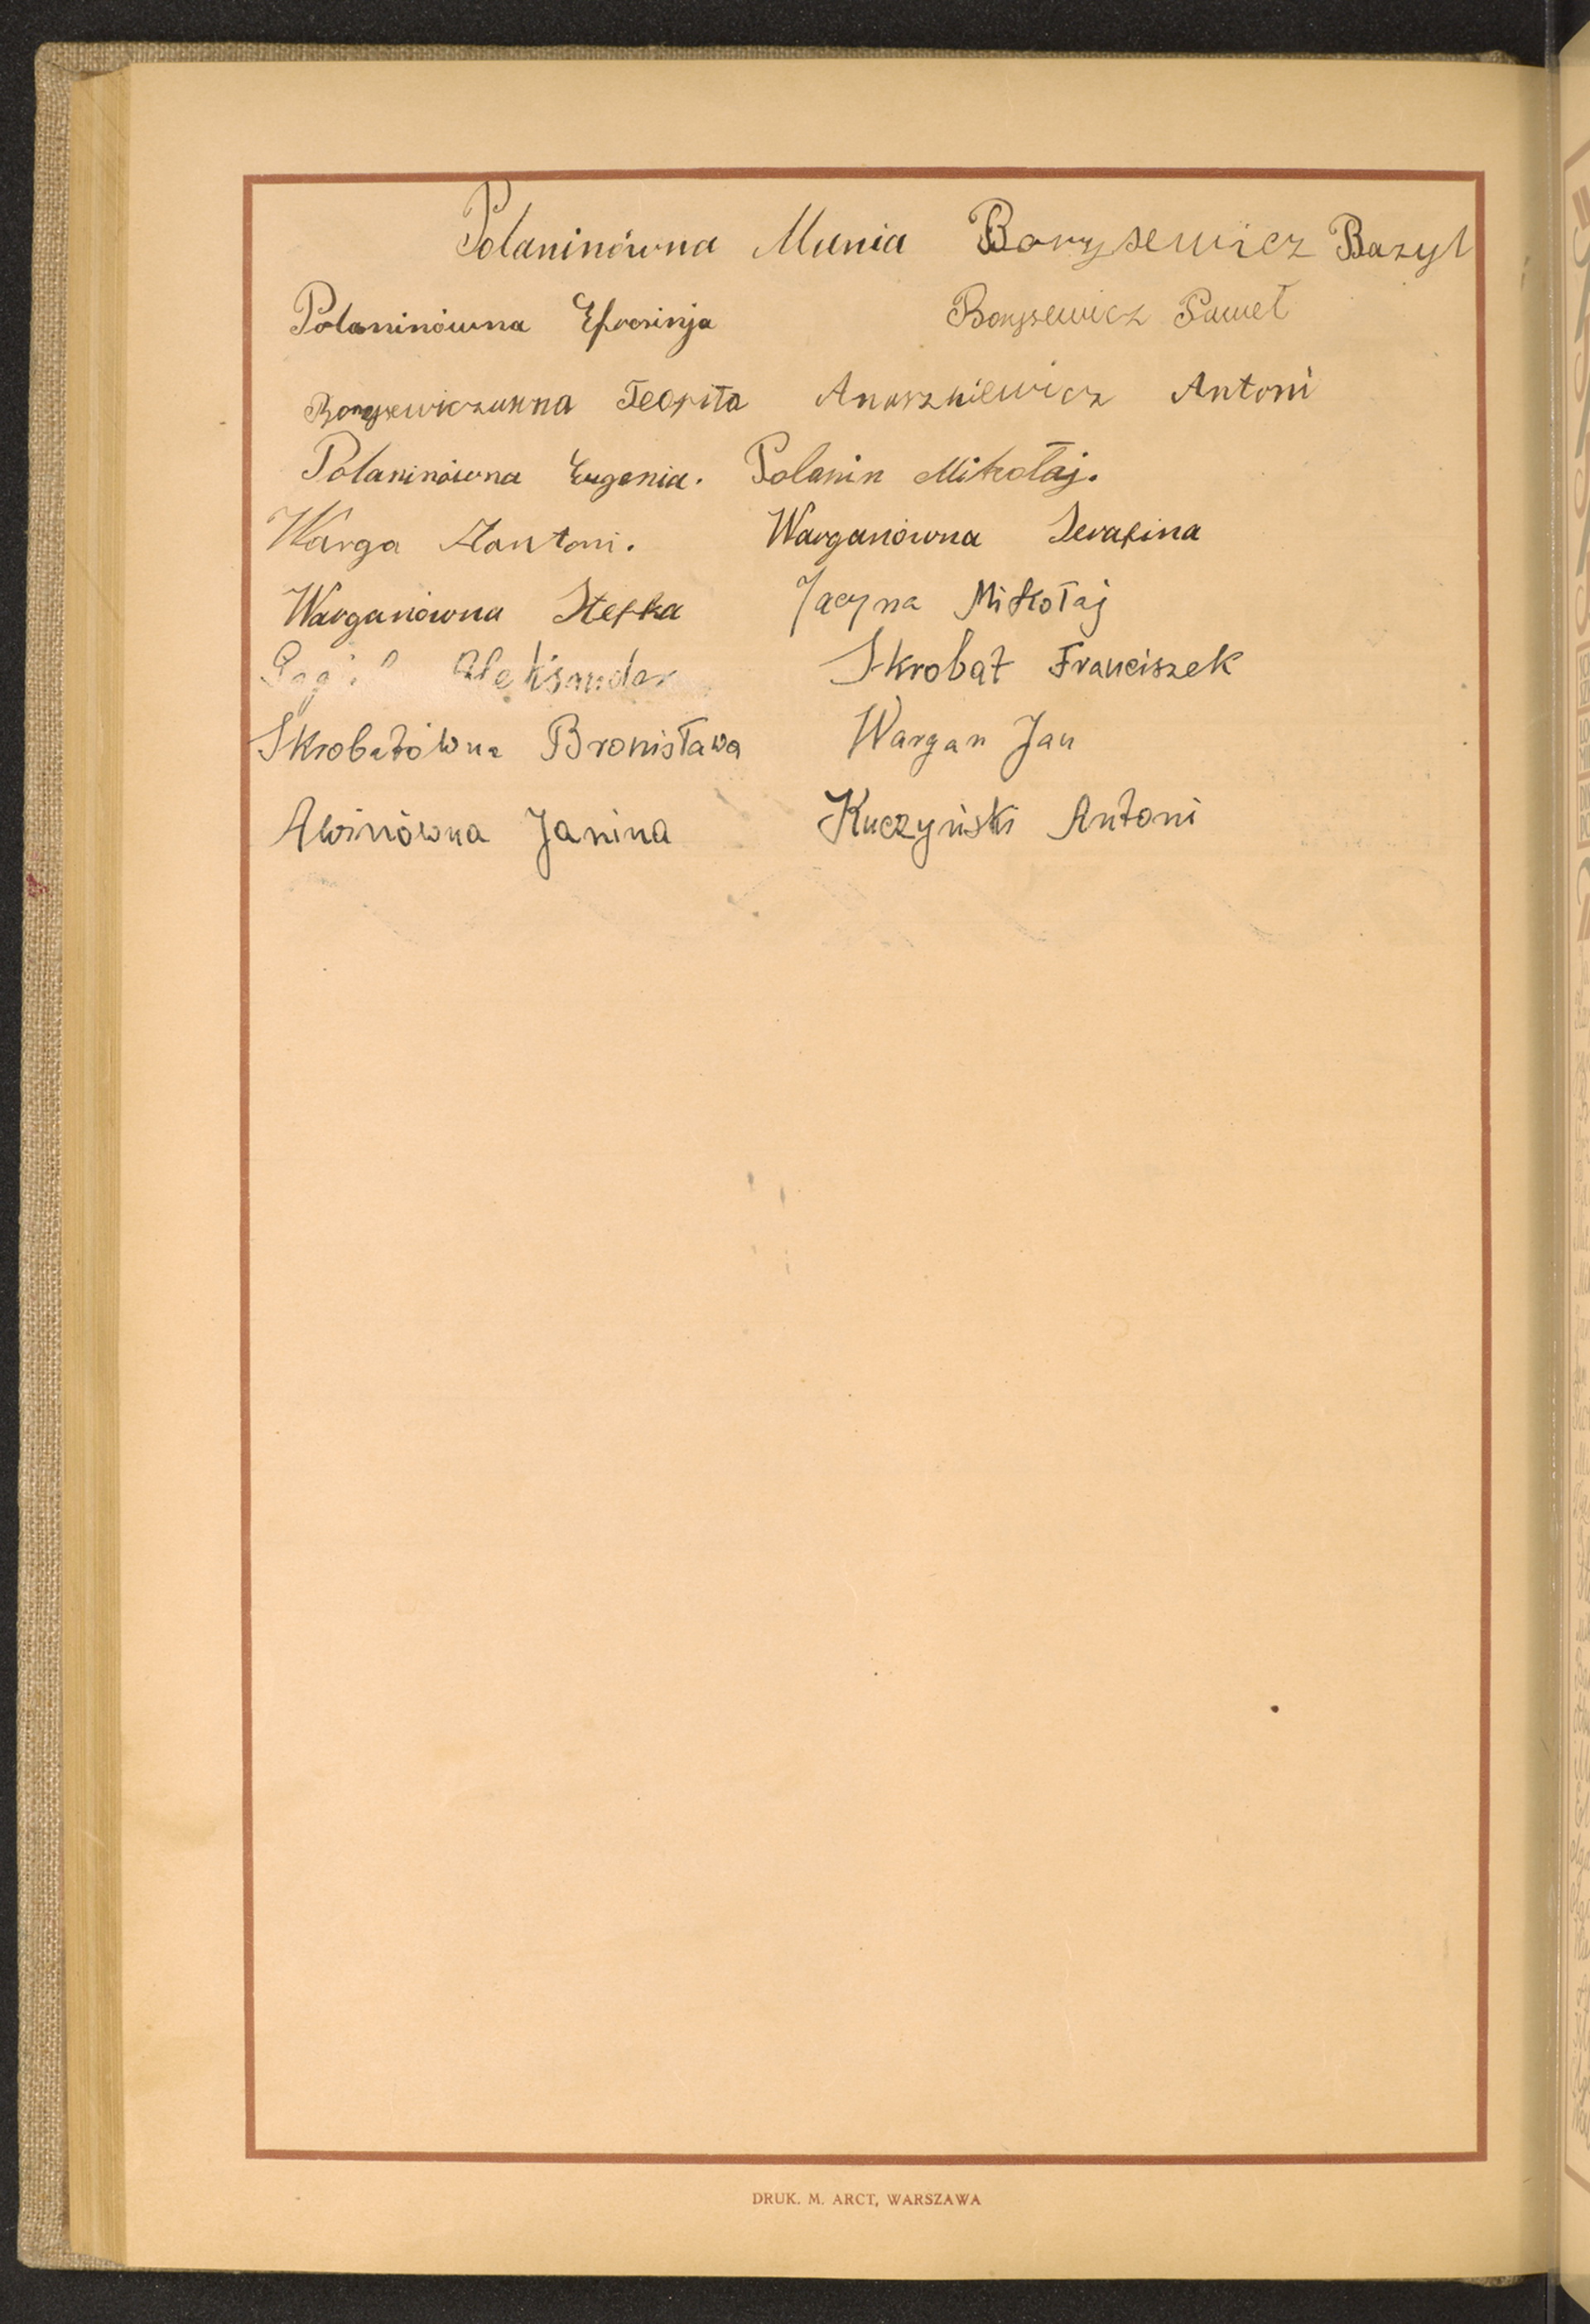 Polaninówna Mania Borysewicz Bazyl
Polaninówna Efrosinja Borysewicz Paweł
Borysewiczuwna Teofita Anuszkiewicz Antoni
Polaninówna Eugenia. Polanin Mikołaj.
Warga Antoni. Warganówna Serafina
Warganówna Stefka Jacyna Mikołaj
Aleksander Skrobąt Franciszek
Skrobatówna Bronisława Wargan Jan
Awinówna Janina Kuczyński Antoni
DRUK. M. ARCT, WARSZAWA